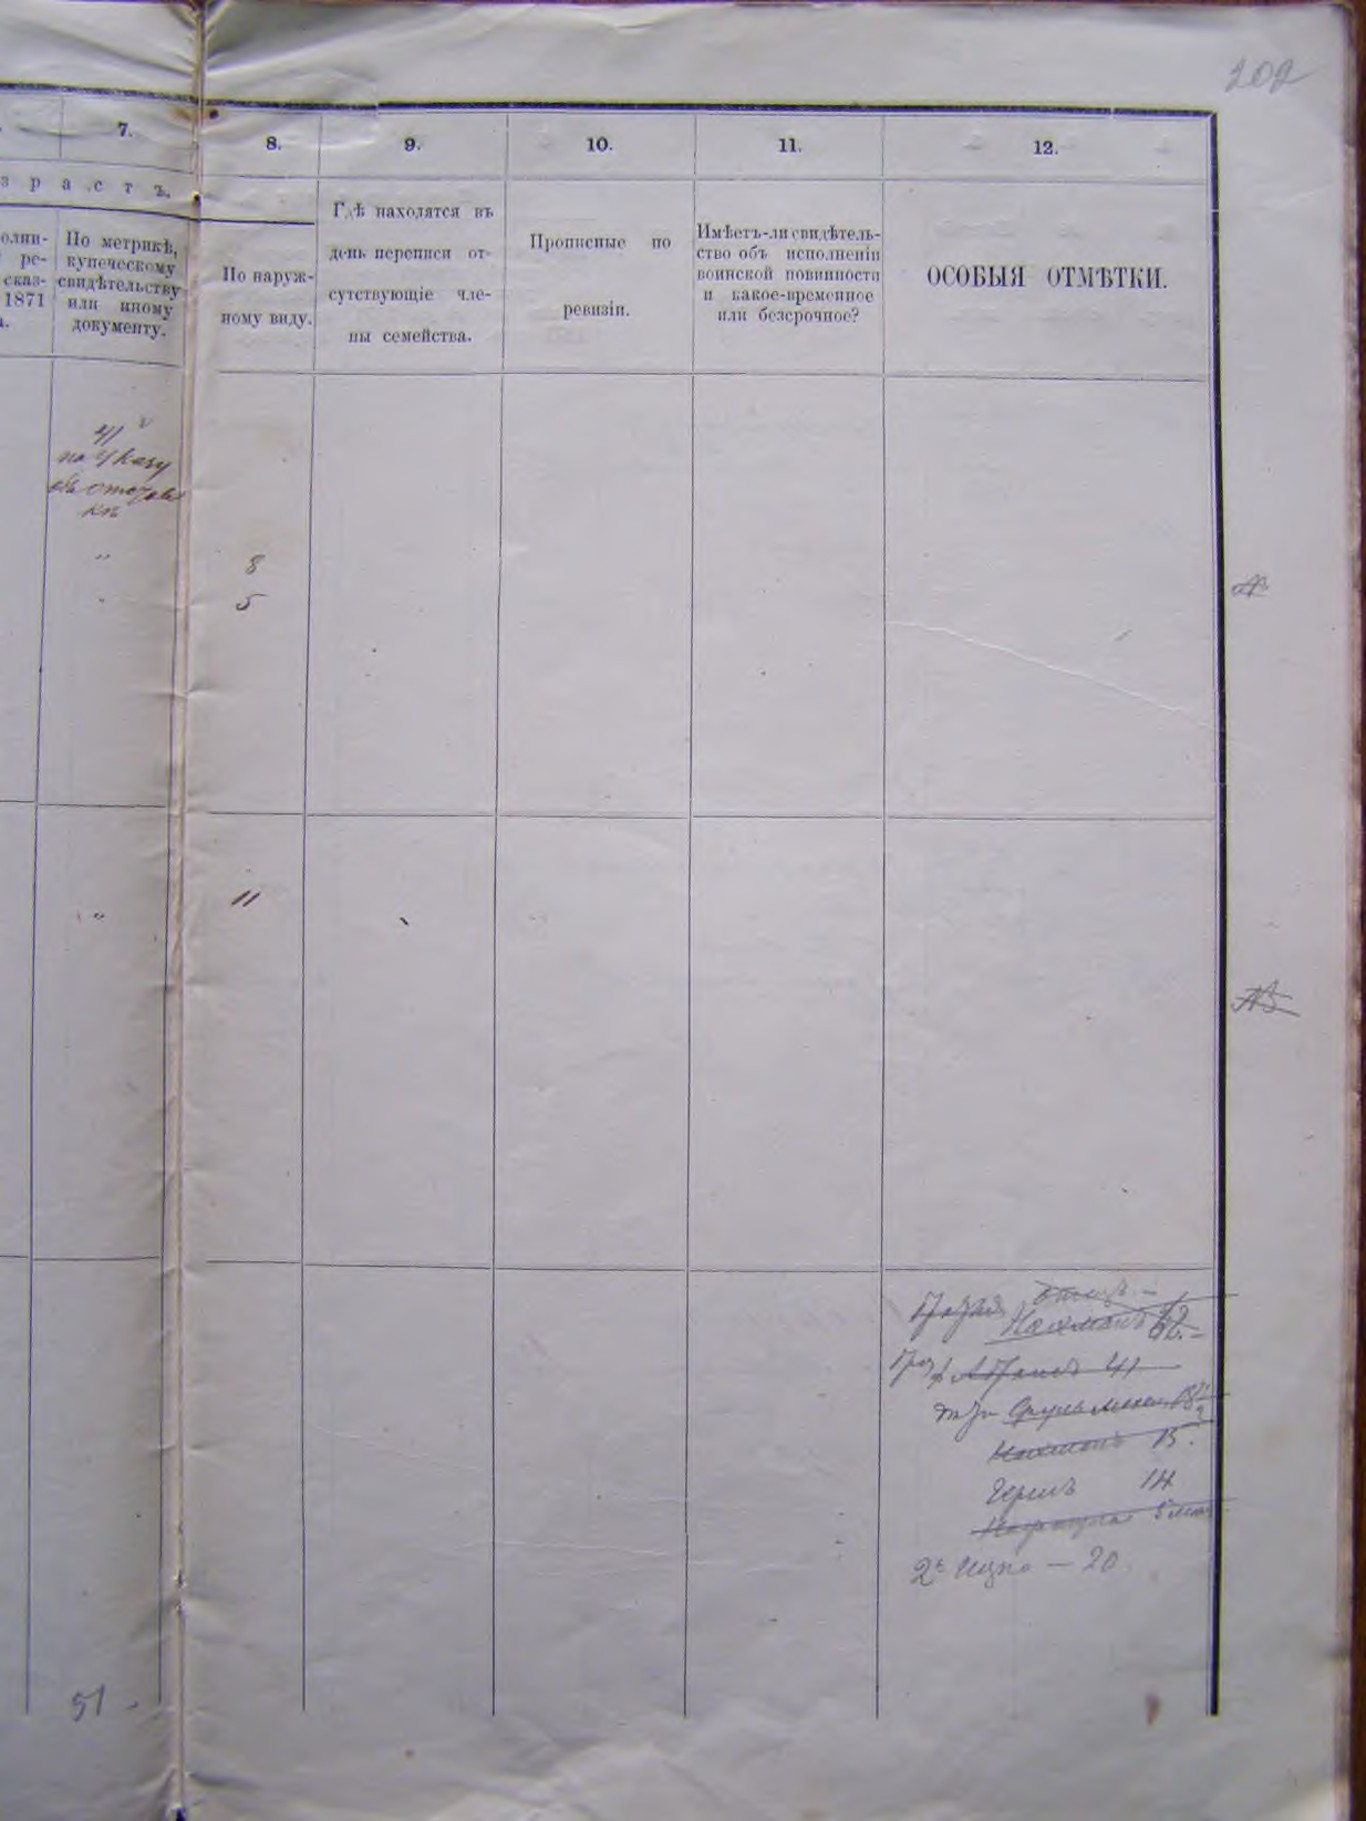 202
7.
8.
9.
10.
11.
12.
з р а с т ъ.
олни-
ре-
сказ-
1871
По метрикѣ,
купеческому
свидѣтельству
или иному
документу.
По наруж-
ному виду.
Гдѣ находятся въ
день переписи от-
сутствующіе чле-
ны семейства.
Прописные по
ревизіи.
Имѣетъ-ли свидѣтель-
ство объ исполненіи
воинской повинности
и какое-временное
или безсрочное?
ОСОБЫЯ ОТМѢТКИ.
41
по Указу
объ отставкѣ
"
8
"
5
"
11
отецъ
Нахманъ 62.
41
Нахманъ 15.
14
20
51